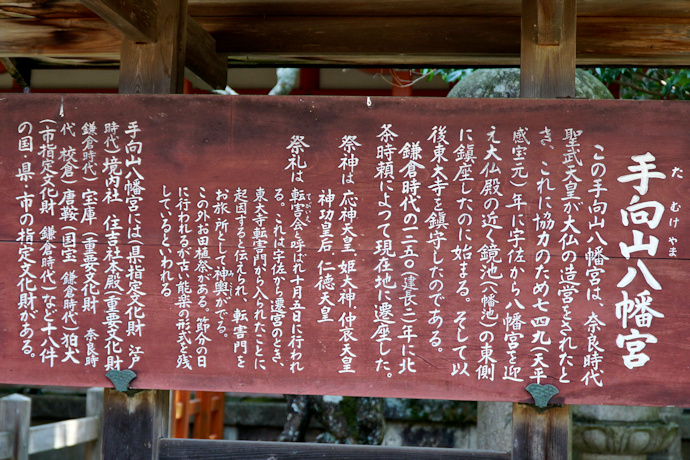 手向山八幡宮
たむけやま
この手向山八幡宮は、奈良時代
聖武天皇が大仏の造営をされたと
き、これに協力のため七四九(天平
感宝元)年に宇佐から八幡宮を迎
え大仏殿の近く鏡池(八幡池)の東側
に鎮座したのに始まる。そして以
後東大寺を鎮守したのである。
鎌倉時代の一二五〇(建長二)年に北
条時頼によつて現在地に遷座した。
祭神は 応神天皇 姫大神 仲哀天皇
神功皇后 仁徳天皇
祭礼は 転害会と呼ばれ十月五日に行われ
てがいえ
る。これは宇佐から遷宮のとき、
東大寺転害門から入られたことに
起因すると伝えられ、転害門を
お旅所として神輿がでる。
この外お田植祭がある。節分の日
に行われるが古い能楽の形式を残
しているといわれる。
手向山八幡宮には(県指定文化財 江戸
時代)境内社 住吉社本殿(重要文化財
鎌倉時代)宝庫(重要文化財 奈良時
代 校倉)唐鞍(国宝 鎌倉時代)狛犬
(市指定文化財 鎌倉時代)など十八件
の国・県・市の指定文化財がある。